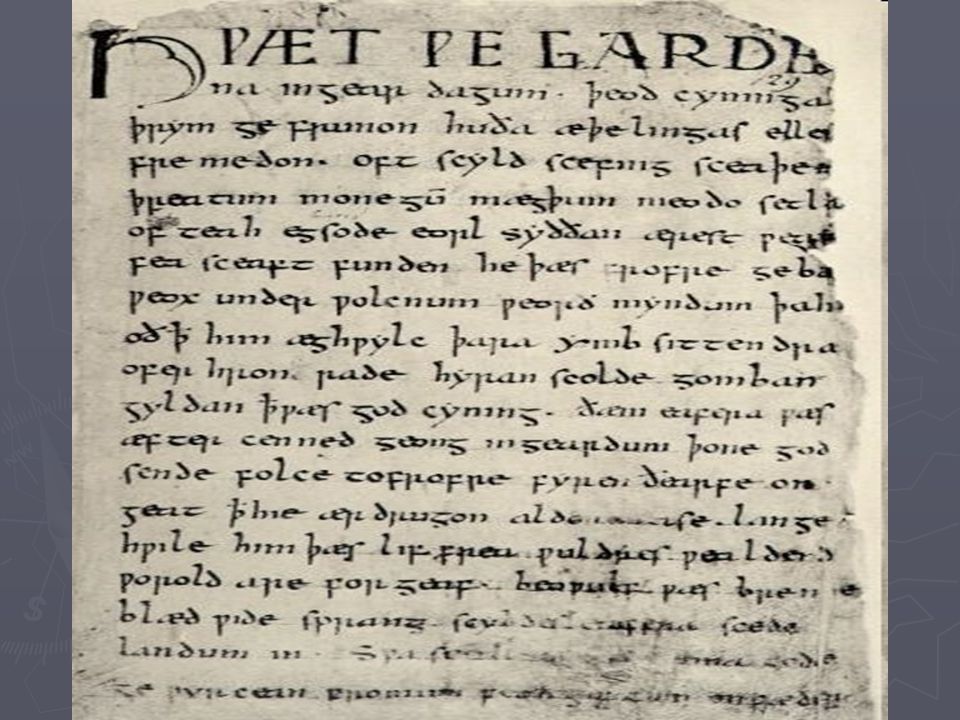 HǷÆT ǷE GARDE
29
na ingear dagum. þeod cyninga
þrym ge frunon huða æþelingas elle
fre medon. oft scyld scefing sceaþe
þreatum monegū mægþum meodo setla
of teah egsode eorl syððan ærest ƿear
fea sceaft funden he þæs frofre geba
ƿeox under ƿolcnum ƿeorð myndum þah
oð ꝥ him æghƿylc þara ymb sittendra
ofer hron rade hyran scolde gomban
gyldan ꝥ ƿæs god cyning. ðæm eafera ƿæs
æfter cenned geong ingeardum þone god
sende folce tofrofre fyren ðearfe on
geat ꝥ hie ær drugon lange
hƿile him þæs lif frea ƿuldres ƿealdend
ƿorold are for geaf. beoƿulf ƿæs breme
blæd ƿide sprang scyldes eafera scede
landum in. Sƿa sceal guma gode
ge ƿyrcean fromum feoh giftum on fæder